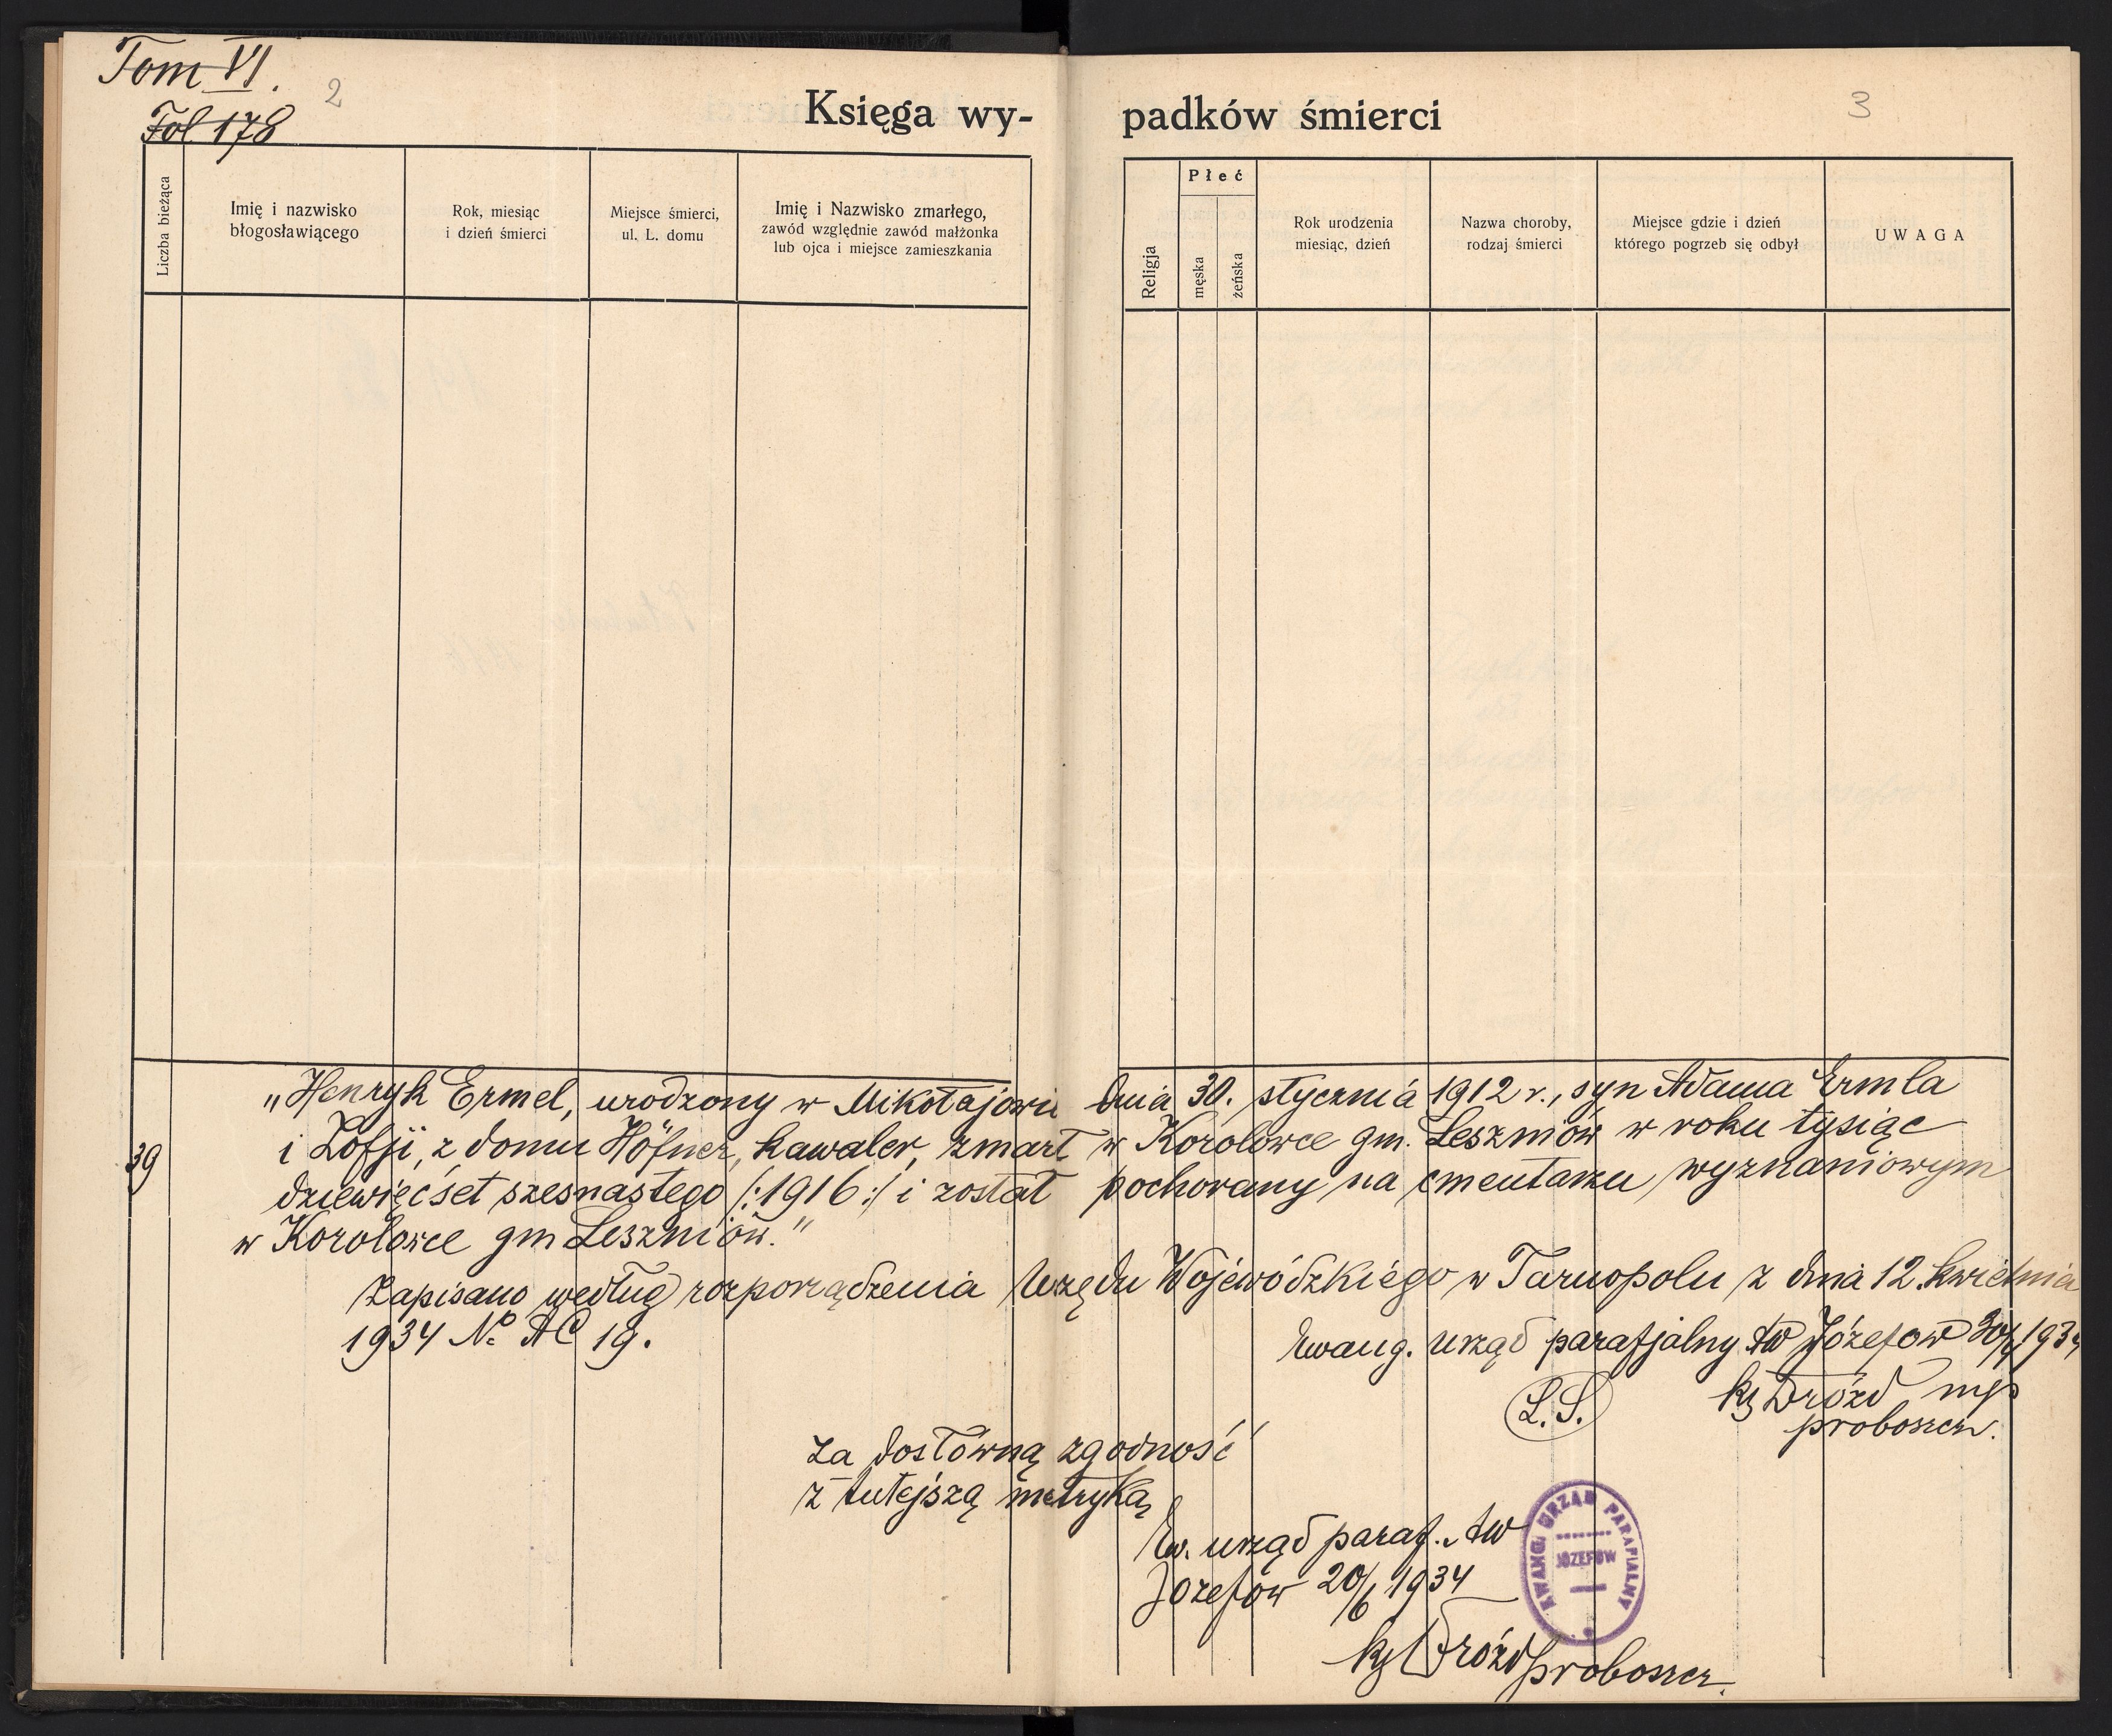 Tom VI.
Fol 178
2
Księga wy-
padków śmierci
3
Liczba bieżąca
Imię i nazwisko
błogosławiącego
Rok, miesiąc
i dzień śmierci
Miejsce śmierci,
ul. L. domu
Imię i Nazwisko zmarłego,
zawód względnie zawód małżonka
lub ojca i miejsce zamieszkania
Religja
Płeć
męska
żeńska
Rok urodzenia
miesiąc, dzień
Nazwa choroby,
rodzaj śmierci
Miejsce gdzie i dzień
którego pogrzeb się odbył
UWAGA
39
„Henryk Ermel, urodzony w Mikołajowie dnia 30. stycznia 1912 r., syn Adama Ermla
i Zofji, z domu Höfner, kawaler, zmarł w Korolowce gm. Leszniów w roku tysiąc
dziewięćset szesnastego /:1916:/ i został pochowany na cmentarzu wyznaniowym
w Korolowce gm Leszniów."
Zapisano według rozporządzenia Urzędu Wojewódzkiego w Tarnopolu z dnia 12. kwietnia
1934 No AC 19.
Ewang. urząd parafjalny AW Józefow 1934
L.S.
ks Dróżd mp
proboszcz.
Za dosłówną zgodność
z tutejszą metryką
Ew. urząd paraf. AW
Józefów 20/6 1934
EWANG. URZĄD PARAFIALNY
JÓZEFÓW
ks Dróżd proboszcz.